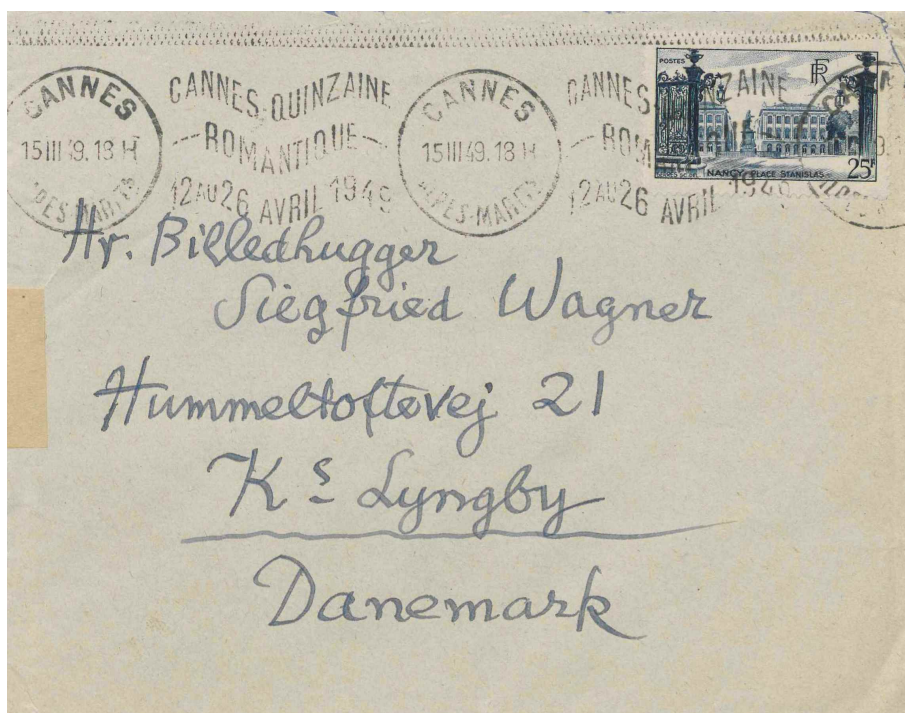 CANNES
15 III 49. 18 H
ALPES-MARITES
CANNES-QUINZAINE
ROMANTIQUE
12 AU 26 AVRIL 1949
CANNES
15 III 49. 18 H
ALPES-MARITES
CANNES-QUINZAINE
ROMANTIQUE
12 AU 26 AVRIL 1949
POSTES
RF
NANCY_PLACE STANISLAS
25F
Hr. Billedhugger
Siegfried Wagner
Hummeltoftevej 21
Ks Lyngby
Danemark